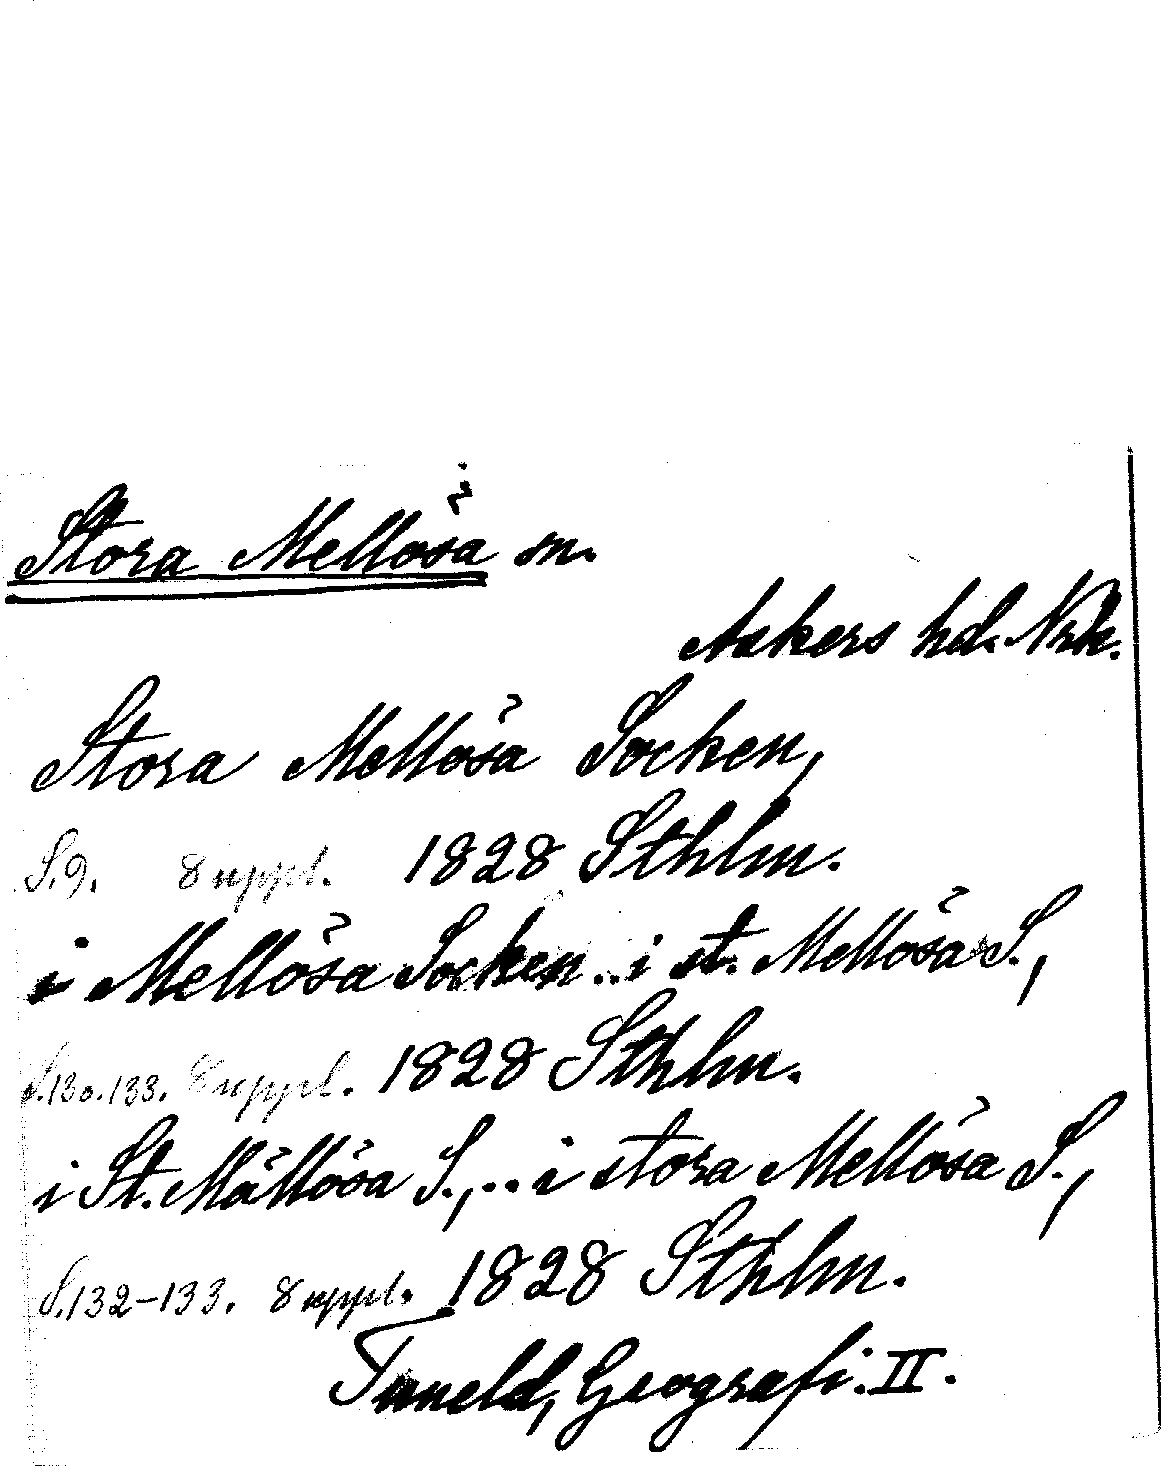 Stora Mellösa sn.
Askers hd. Nrk.
Stora Mellösa Socken,
S.9. 8 uppl. 1828 Sthlm.
i Mellösa Socken .. i st. Mellösa S.,
S.130.133. 8 uppl. 1828 Sthlm.
i St. Mällösa S.,.. i stora Mellösa S.,
S.132-133. 8 uppl. 1828 Sthlm.
Tuneld, Geografi. II.